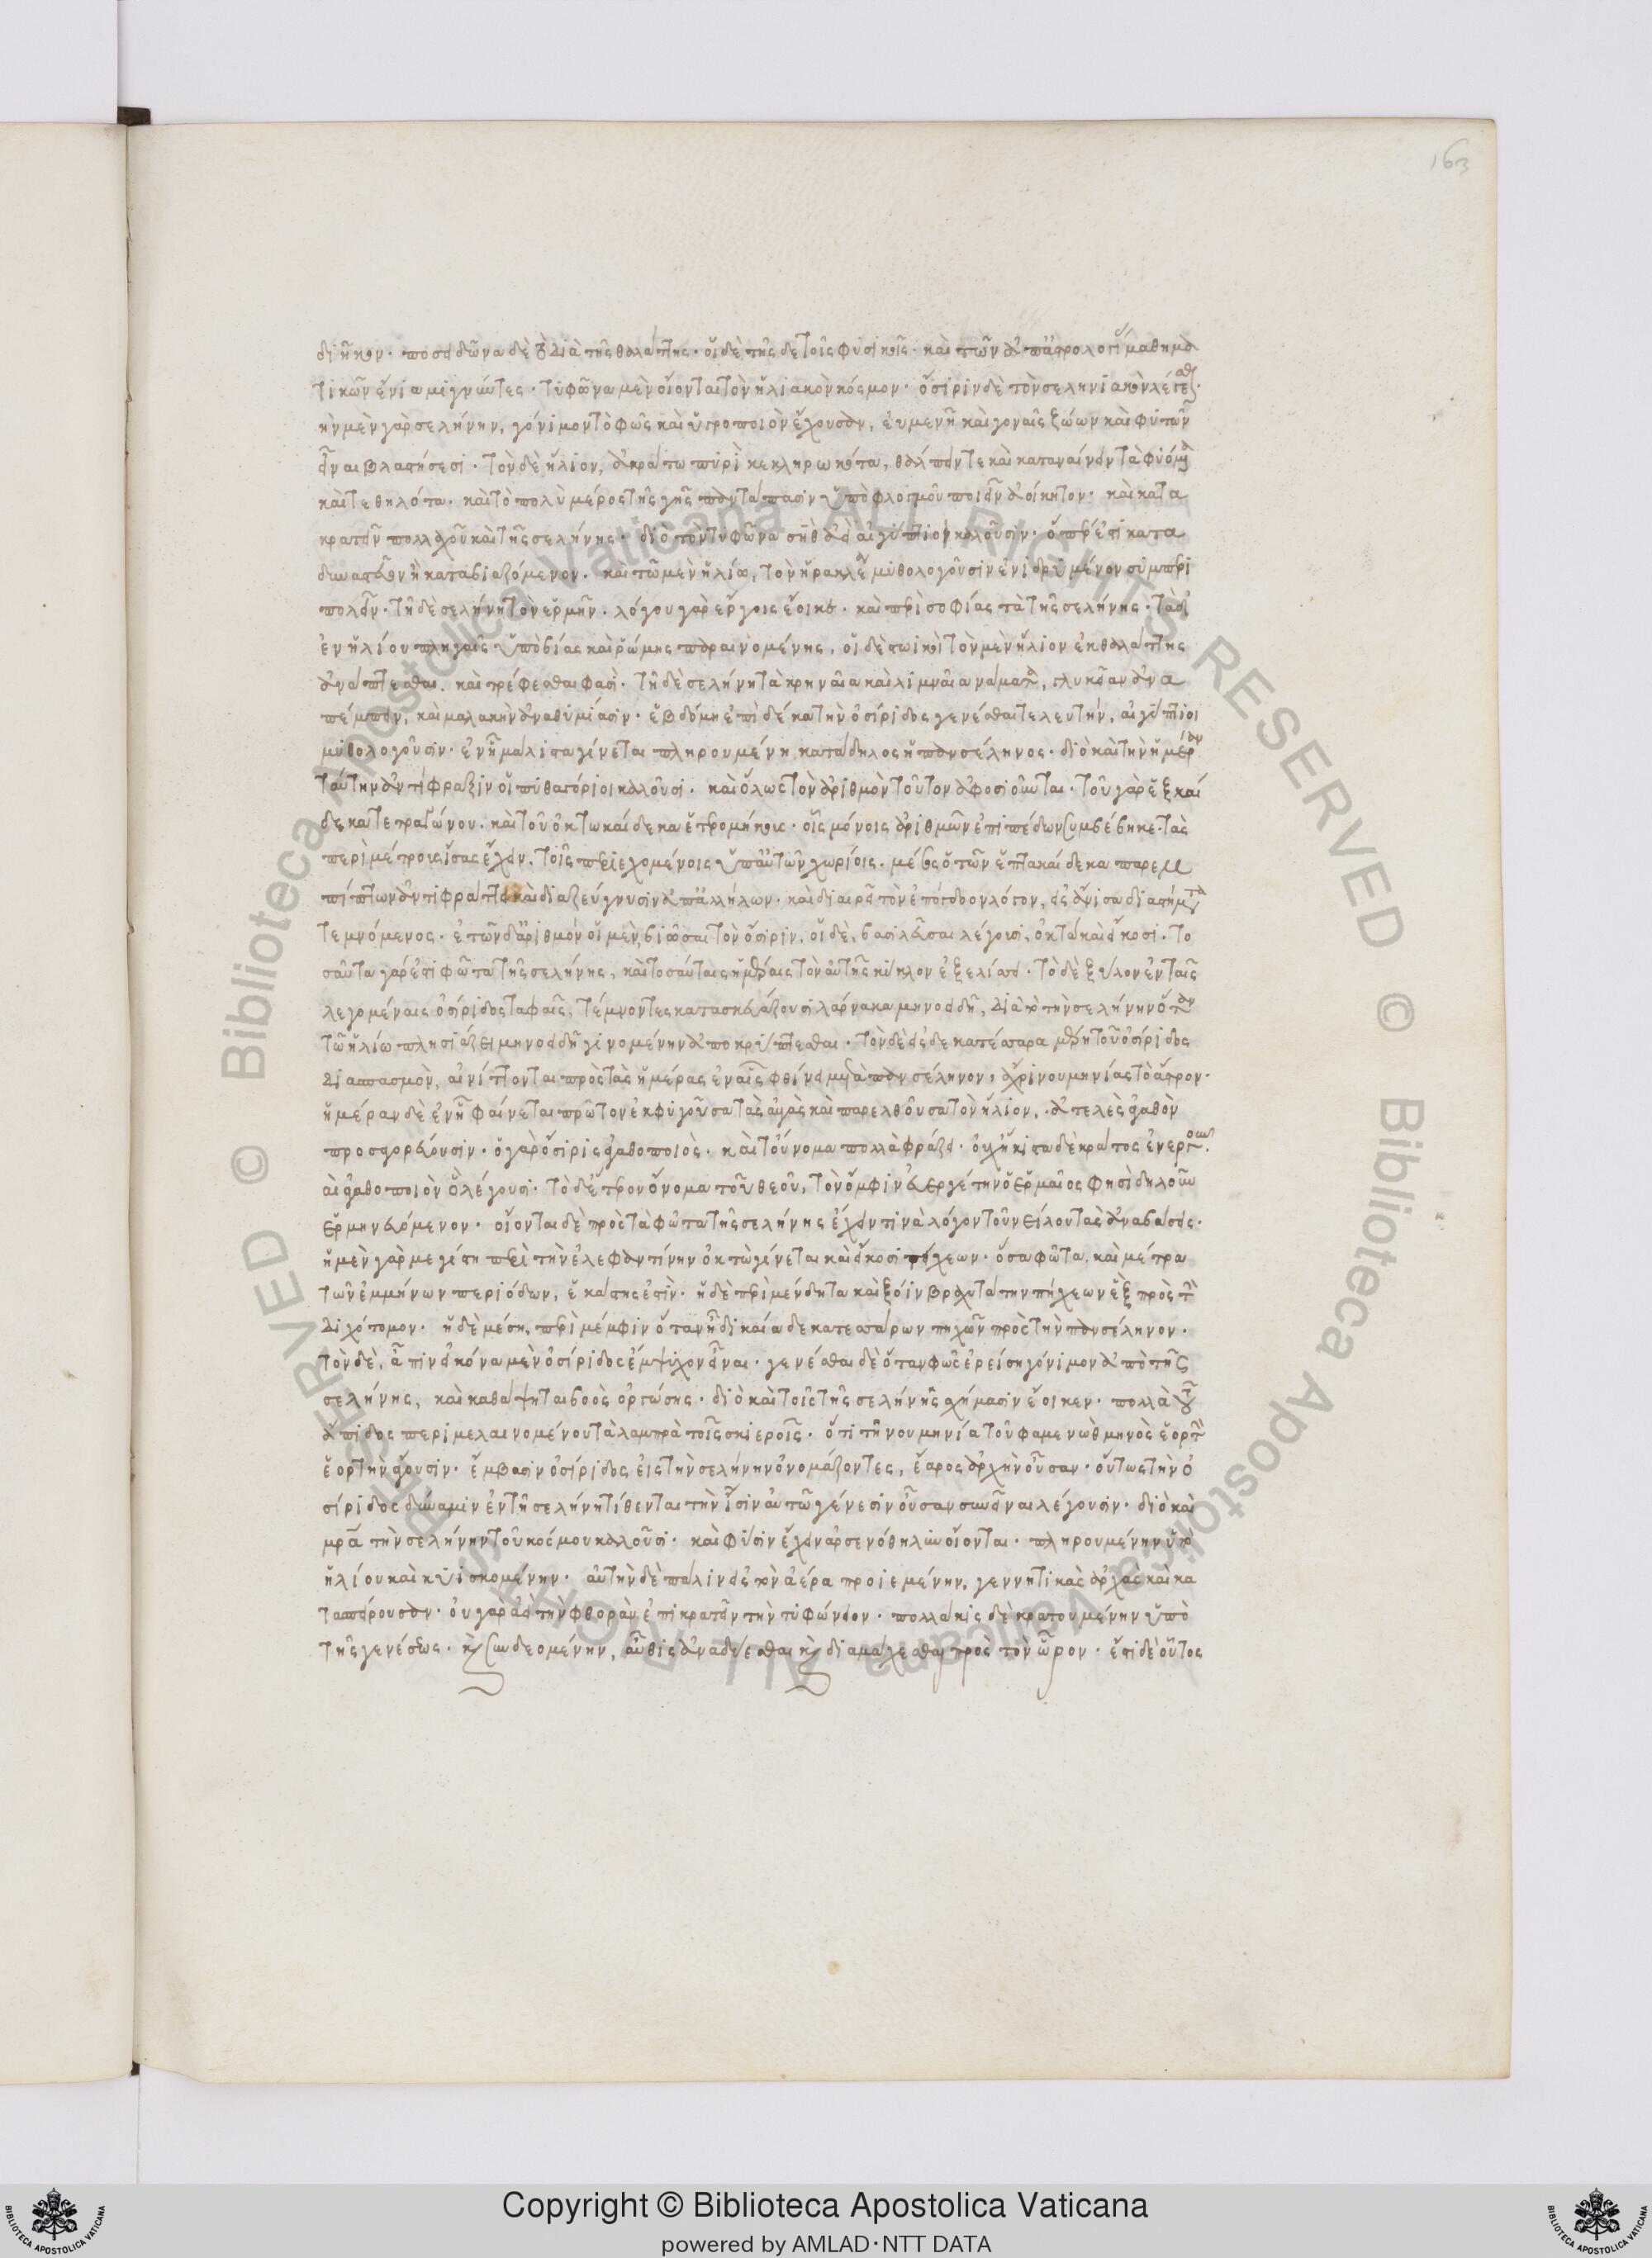 163
διῆκον· ποσειδῶνα δὲ τὸ διὰ τῆς θαλάττης· οἱ δὲ τῆςδε τοῖς φυσικοῖς· καὶ τῶν ἀπ' ἀστρολογίας μαθημα
τικῶν ἔνια μιγνύντες· τυφῶνα μὲν οἴονται τὸν ἡλιακὸν κόσμον· ὄσιριν δὲ τὸν σεληνιακὸν λέγεσθαι·
τὴν μὲν γὰρ σελήνην, γόνιμον τὸ φῶς καὶ ὑγροποιὸν ἔχουσαν, εὐμενῆ καὶ γοναῖς ζώων καὶ φυτῶν
εἶναι βλαστήσεσι· τὸν δὲ ἥλιον, ἀκράτω πυρὶ κεκληρωκότα, θάλπειν τε καὶ καταυαίνειν τὰ φυόμενα
καὶ τεθηλότα· καὶ τὸ πολὺ μέρος τῆς γῆς παντάπασιν ὑπὸ φλογμοῦ ποιεῖν ἀοίκητον· καὶ κατα
κρατεῖν πολλαχοῦ καὶ τῆς σελήνης· διὸ τὸν τυφῶνα σὴθ ἀεὶ αἰγύπτιοι καλοῦσιν· ὅπερ ἐστὶ κατα
δυναστεῦον ἢ καταβιαζόμενον· καὶ τῶ μὲν ἡλίω, τὸν ἡρακλέα μυθολογοῦσιν ἐνιδρυμένον συμπερι
πολεῖν· τῆ δὲ σελήνη τὸν ἑρμῆν· λόγου γὰρ ἔργοις ἔοικε· καὶ περὶ σοφίας τὰ τῆς σελήνης· τὰ δ'
ἐν ἡλίου πληγαῖς ὑπὸ βίας καὶ ῥώμης περαινομένης, οἱ δὲ στωικοὶ τὸν μὲν ἥλιον ἐκ θαλάττης
ἀνάπτεσθαι. καὶ τρέφεσθαι φασὶ· τῆ δὲ σελήνη τὰ κρηναῖα καὶ λιμναῖα νάματα, γλυκεῖαν ἀνα
πέμπειν, καὶ μαλακὴν ἀναθυμίασιν· ἑβδόμη ἐπὶ δέκα τὴν ὀσίριδος γενέσθαι τελευτήν, αἰγύπτιοι
μυθολογοῦσιν· ἐν ἧ μάλιστα γίνεται πληρουμένη κατάδηλος ἡ πανσέληνος· διὸ καὶ τὴν ἡμέραν
ταύτην ἀντίφραξιν οἱ πυθαγόριοι καλοῦσι· καὶ ὅλως τὸν ἀριθμὸν τοῦτον ἀφοσιοῦνται· τοῦ γὰρ ἑξκαί
δεκα τετραγώνου. καὶ τοῦ ὀκτωκαίδεκα ἑτερομήκους· οἷς μόνοις ἀριθμῶν ἐπιπέδων συμβέβηκε τὰς
περιμέτρους ἴσας ἔχειν, τοῖς περιεχομένοις ὑπ' αὐτῶν χωρίοις· μέσος ὁ τῶν ἑπτακαίδεκα παρεμ
πίπτων ἀντιφράττει καὶ διαζεύγνυσιν ἀπ' ἀλλήλων· καὶ διαιρεῖ τὸν ἐπόγδοον λόγον, εἰς ἄνισα διαστήματα
τεμνόμενος· ἐτῶν δ' ἀριθμὸν οἱ μὲν, βιῶσαι τὸν ὄσιριν, οἱ δὲ, βασιλεῦσαι λέγουσι, ὀκτὼ καὶ εἴκοσι· το
σαῦτα γάρ ἐστι φῶτα τῆς σελήνης, καὶ τοσαύταις ἡμέραις τὸν αὐτῆς κύκλον ἐξελίσσει· τὸ δὲ ξύλον ἐν ταῖς
λεγομέναις ὀσίριδος ταφαῖς, τέμνοντες κατασκευάζουσι λάρνακα μηνοειδῆ, διὰ τὸ τὴν σελήνην ὅταν
τῶ ἡλίω πλησιάζει μηνοειδῆ γινομένην ἀποκρύπτεσθαι· τὸν δὲ εἰς δεκατέσσαρα μέρη τοῦ ὀσίριδος
διασπασμὸν, αἰνίττονται πρὸς τὰς ἡμέρας ἐν αἷς φθίνει μετὰ πανσέληνον, ἄχρι νουμηνίας τὸ ἄστρον·
ἡμέραν δὲ ἐν ἧ φαίνεται πρῶτον ἐκφυγοῦσα τὰς αὐγὰς καὶ παρελθοῦσα τὸν ἥλιον, ἀτελὲς ἀγαθὸν
προσαγορεύουσιν· ὁ γὰρ ὄσιρις ἀγαθοποιὸς· καὶ τοὔνομα πολλὰ φράζει· οὐχ ἥκιστα δὲ κράτος ἐνεργοῦν
καὶ ἀγαθοποιὸν ὃ λέγουσι· τὸ δ' ἕτερον ὄνομα τοῦ θεοῦ, τὸν ὄμφιν εὐεργέτην ὁ ἑρμαῖος φησὶ δηλοῦν
ἑρμηνευόμενον· οἴονται δὲ πρὸς τὰ φῶτα τῆς σελήνης ἔχειν τινὰ λόγον τοῦ νείλου τὰς ἀναβάσεις·
ἡ μὲν γὰρ μεγίστη περὶ τὴν ἐλεφαντίνην ὀκτὼ γίνεται καὶ εἴκοσι πήχεων· ὅσα φῶτα. καὶ μέτρα
τῶν ἐμμήνων περιόδων, ἑκάστης ἐστὶν· ἡ δὲ περὶ μένδητα καὶ ξόϊν βραχυτάτην πήχεων ἓξ πρὸς τὴν
διχότομον· ἡ δὲ μέση, περὶ μέμφιν ὅταν ἦ δικαία δεκατεσσάρων πηχῶν πρὸς τὴν πανσέληνον·
τὸν δὲ, ἆπιν εἰκόνα μὲν ὀσίριδος ἔμψυχον εἶναι· γενέσθαι δὲ ὅταν φῶς ἐρείση γόνιμον ἀπὸ τῆς
σελήνης, καὶ καθάψηται βοὸς ὀργώσης· διὸ καὶ τοῖς τῆς σελήνης σχήμασιν ἔοικεν· πολλὰ τοῦ
ἄπιδος περιμελαινομένου τὰ λαμπρὰ τοῖς σκιεροῖς· ὅτι τῆ νουμηνία τοῦ φαμενὼθ μηνὸς ἑορτὴν
ἑορτὴν ἄγουσιν· ἔμβασιν ὀσίριδος εἰς τὴν σελήνην ὀνομάζοντες, ἔαρος ἀρχὴν οὖσαν· οὕτως τὴν ὀ
σίριδος δύναμιν ἐν τῆ σελήνη τίθενται τὴν ἶσιν αὐτῶ γένεσιν οὖσαν συνεῖναι λέγουσιν· διὸ καὶ
μρα τὴν σελήνην τοῦ κόσμου καλοῦσι· καὶ φύσιν ἔχειν ἀρσενόθηλυν οἴονται· πληρουμένην ὑπὸ
ἡλίου καὶ κυισκομένην· αὐτὴν δὲ πάλιν εἰς τὸν ἀέρα προιεμένην, γεννητικὰς ἀρχὰς καὶ κα
τασπείρουσαν· οὐ γὰρ ἀεὶ τὴν φθορὰν ἐπικρατεῖν τὴν τυφώνειον· πολλάκις δὲ κρατουμένην ὑπὸ
τῆς γενέσεως· καὶ συνδεομένην, αὖθις ἀναδύεσθαι καὶ διαμάχεσθαι πρὸς τὸν ὧρον· ἔστι δὲ οὗτος
Copyright © Biblioteca Apostolica Vaticana
powered by AMLAD·NTT DATA
BIBLIOTECA APOSTOLICA VATICANA
BIBLIOTECA APOSTOLICA VATICANA
© Biblioteca Apostolica Vaticana ALL RIGHTS RESERVED
© Biblioteca Apostolica Vaticana ALL RIGHTS RESERVED